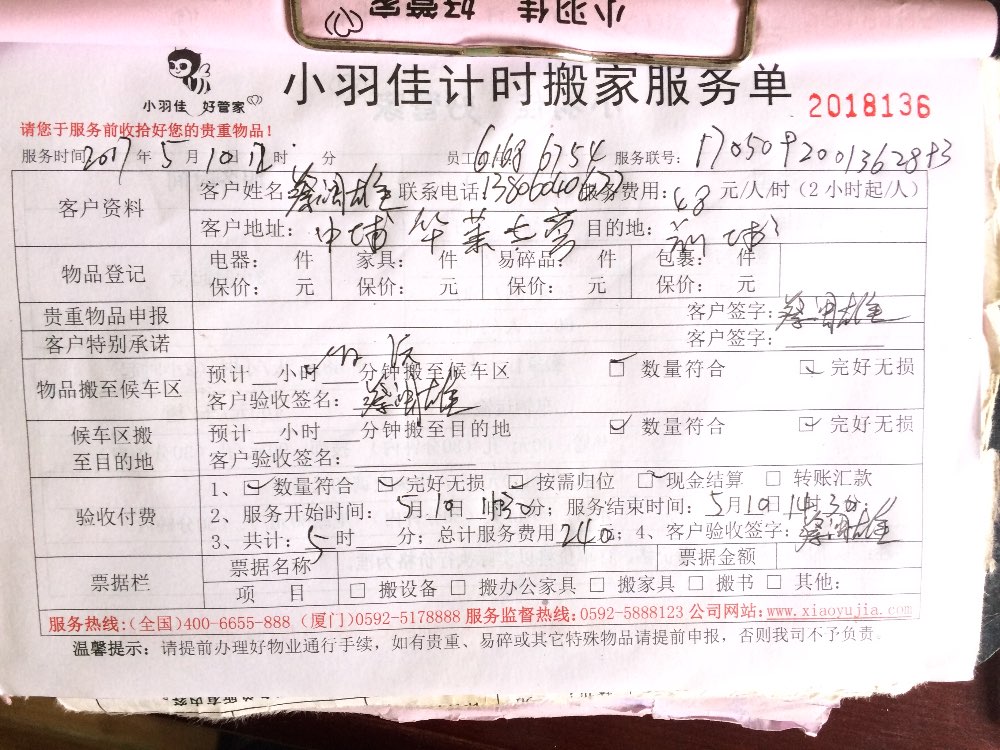 小羽佳 好管家
小羽佳 好管家
小羽佳计时搬家服务单
2018136
请您于服务前收拾好您的贵重物品！
服务时间 2017 年 5 月 10 日 12 时 分 员工 6168 6754 服务联号：
客户资料 客户姓名 联系电话: 服务费用: 48 元/人/时（2 小时起/人）
客户地址: 中埔 目的地:
物品登记 电器： 件 家具： 件 易碎品： 件 包裹： 件
保价： 元 保价： 元 保价： 元 保价： 元
贵重物品申报 客户签字:
客户特别承诺 客户签字:
物品搬至候车区 预计__小时___分钟搬至候车区 数量符合 完好无损
客户验收签名：
候车区搬至目的地 预计__小时___分钟搬至目的地 数量符合 完好无损
客户验收签名：
验收付费 1、数量符合 完好无损 按需归位 现金结算 转账汇款
2、服务开始时间： 5月10日 分；服务结束时间：5月10日14时30分；
3、共计：5时___分；总计服务费用240；4、客户验收签字：
票据栏 票据名称 票据金额
项 目 搬设备 搬办公家具 搬家具 搬书 其他:
服务热线:(全国)400-6655-888 (厦门)0592-5178888 服务监督热线:0592-5888123 公司网站:www.xiaoyujia.com
温馨提示：请提前办理好物业通行手续，如有贵重、易碎或其它特殊物品请提前申报，否则我司不予负责。